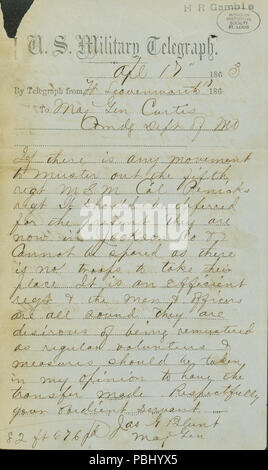 H R Gamble
MISSOURI
HISTORICAL
SOCIETY
ST. LOUIS
U. S. Military Telegraph.
Apl 15" 1863
By Telegraph from Ft Leavenworth 186
To Maj Gen Curtis
Comdg Dept of Mo
If there is any movement
to muster out the fifth
regt M S M Col Penicks
regt it should be deferred
for the present they are
now in
cannot be spared as there
is no troops to take their
place It is an efficient
regt & the men & officers
are all sound They are
desirous of being remustered
as regular volunteers &
measures should be taken
in my opinion to have the
transfer made Respectfully
your obedient servant
82 676 Jas G Blunt
Maj Gen
alamy
alamy
Image ID: PBHYX5
www.alamy.com